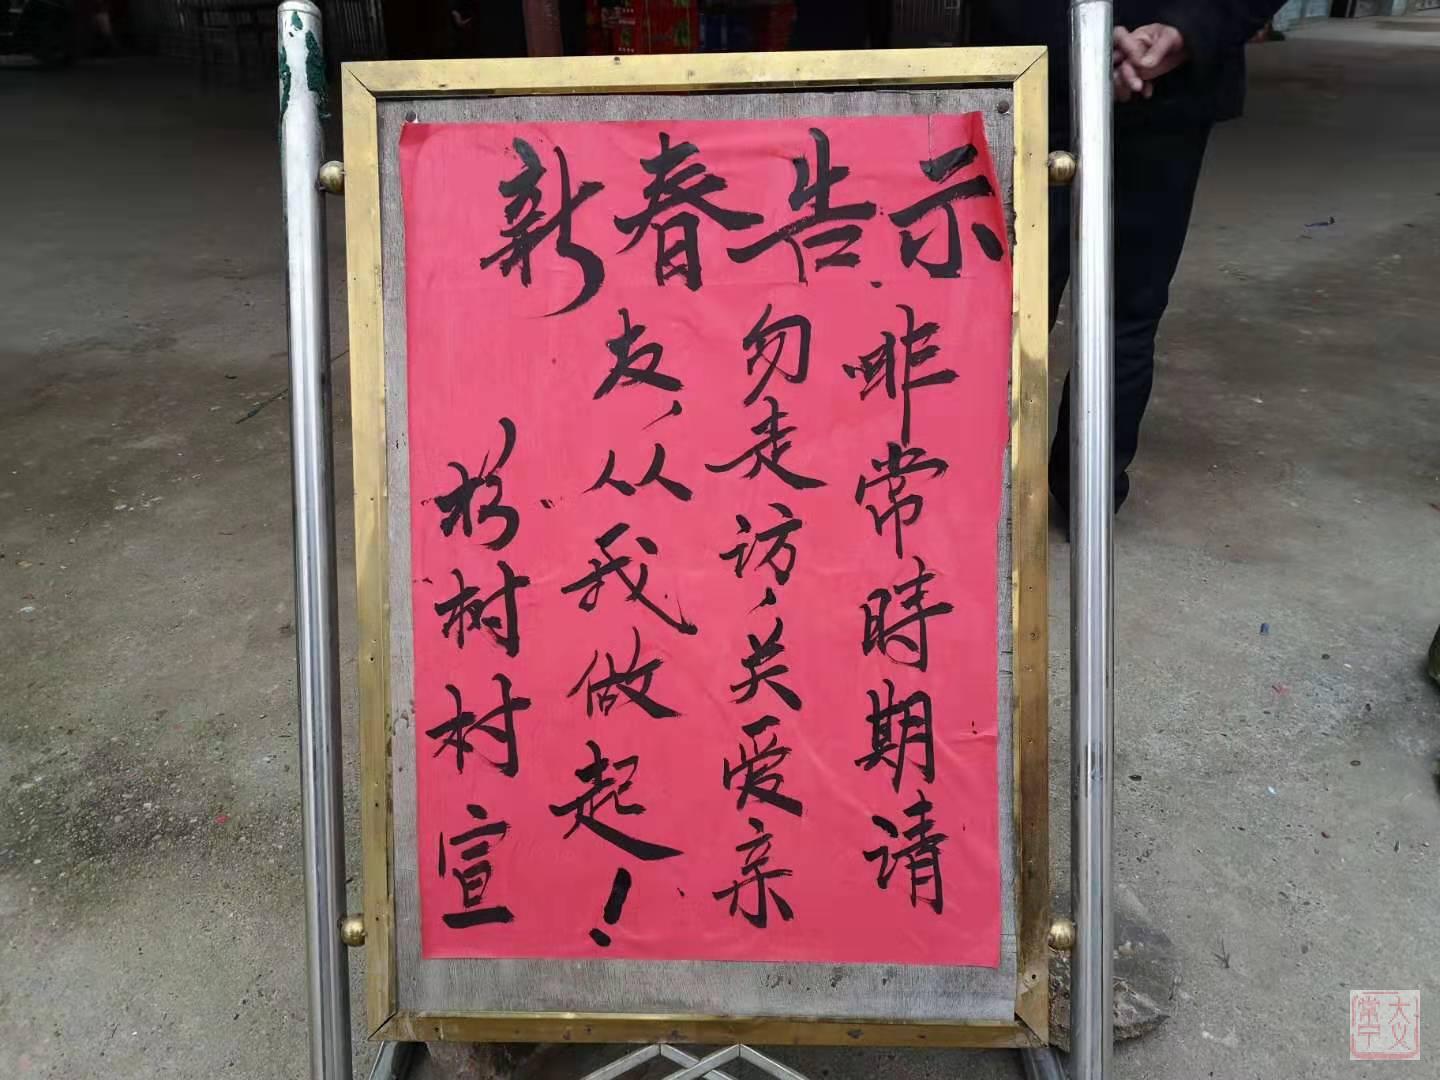 新春告示
非常時期请
勿走访,关爱亲
友,从我做起!
杉树村宣
常宁大义